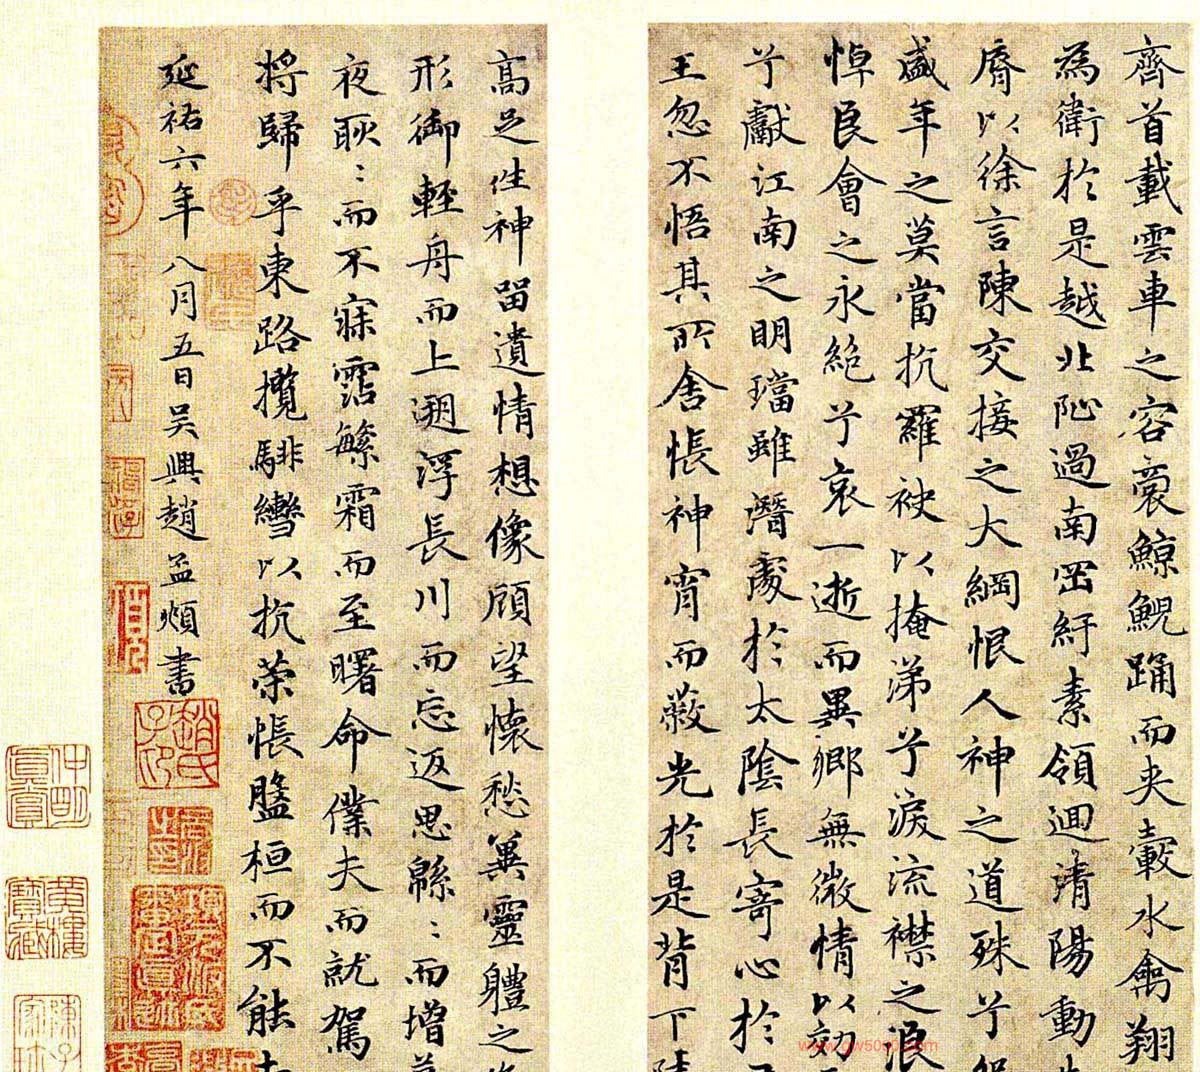 齊首載雲車之容裔鯨鯢踊而夾轂水禽翔
為衛於是越北沚過南岡紆素領迴清陽動
脣以徐言陳交接之大綱恨人神之道殊兮
盛年之莫當抗羅袂以掩涕兮淚流襟之浪
悼良會之永絕兮哀一逝而異鄉無微情以効
兮獻江南之明璫雖潛處於太陰長寄心於
王忽不悟其所舍悵神宵而蔽光於是背下
高足往神留遺情想像顧望懷愁冀靈體之
形御輕舟而上遡浮長川而忘返思緜〻而增
夜耿〻而不寐霑繁霜而至曙命僕夫而就駕
將歸乎東路攬騑轡以抗策悵盤桓而不能去
延祐六年八月五日吳興趙孟頫書
趙氏子印